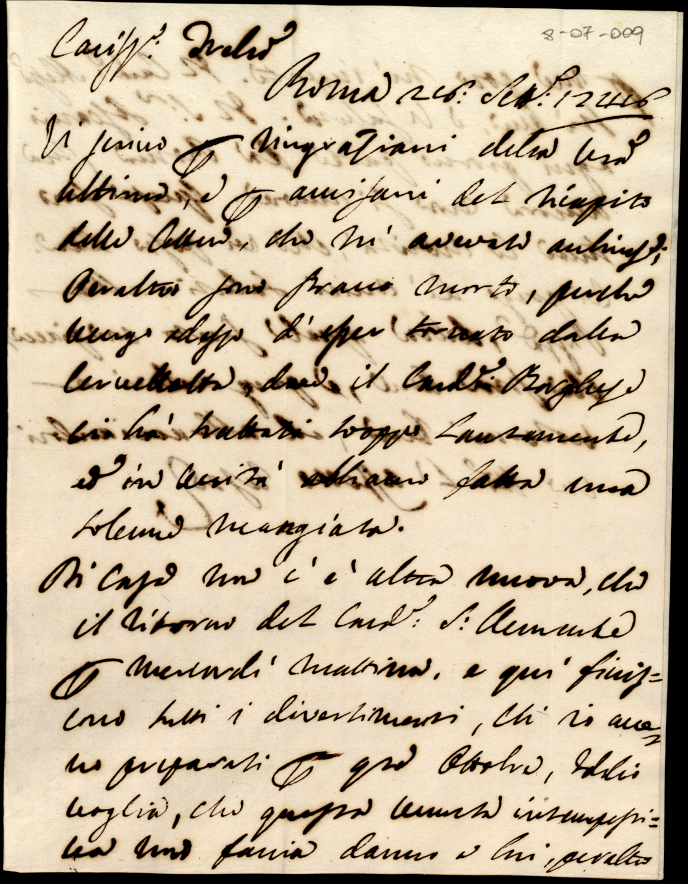 8-07-009
Cariss.º Frello
Roma 26: Sett.e 1746
Vi scrivo ꝑ ringraziarvi della vrã
ultima, e ꝑ avvisarvi del recapito
delle lettere, che m'avevate
Peraltro sono stracco morto, perchè
vengo adesso d'esser tornato dalla
Cervelletta, dove il Card: Borghese
ci ha trattati troppo lautamente,
ed in verità abbiamo fatta una
solenne mangiata.
Di Casa non c'è altra nuova, che
il ritorno del Card: S: Clemente
ꝑ mercordì mattina, e quì finis=
cono tutti i divertimenti, che io ave
vo preparati ꝑ qto Ottobre, Iddio
voglia, che questa venuta intempesti=
va non faccia danno a lui, peraltro